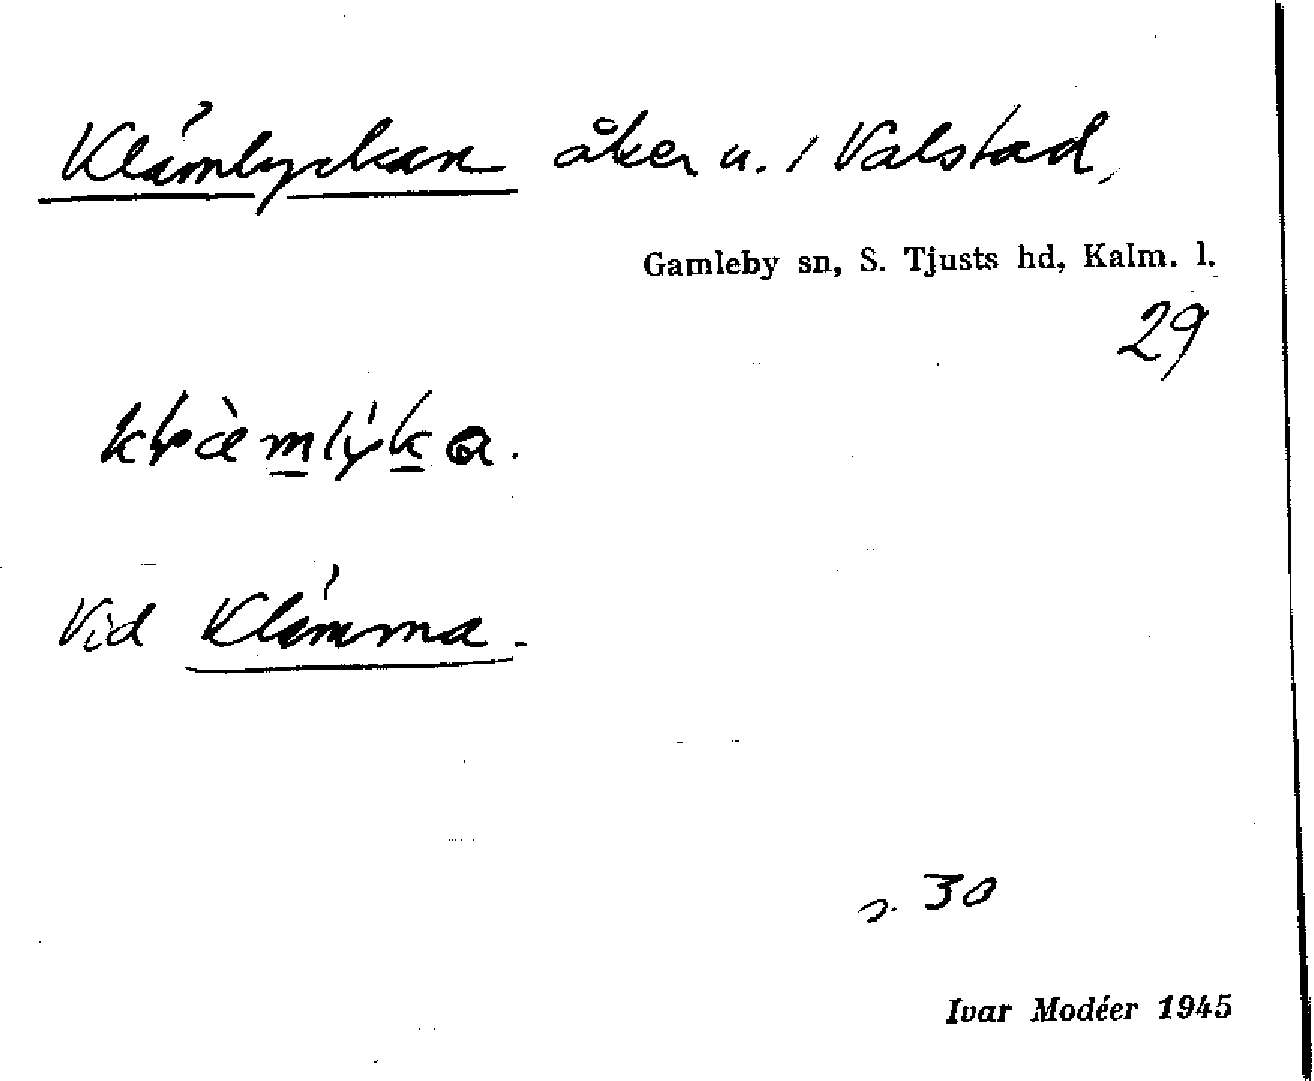 Klämlyckan åker u. 1 Valstad,
Gamleby sn, S. Tjusts hd, Kalm. l.
29
Vid Klämma.
s. 30
Ivar Modéer 1945